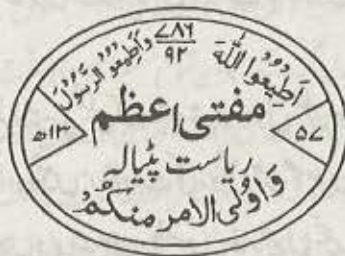 ۷۸۶
۹۲
اَطِیعُوا اللّٰهَ وَاَطِیعُو الرَّسُوْلَ
مفتی اعظم
۱۳ھ ۵۷
ریاست پٹیالہ
وَاُولی الامر منکُمْ